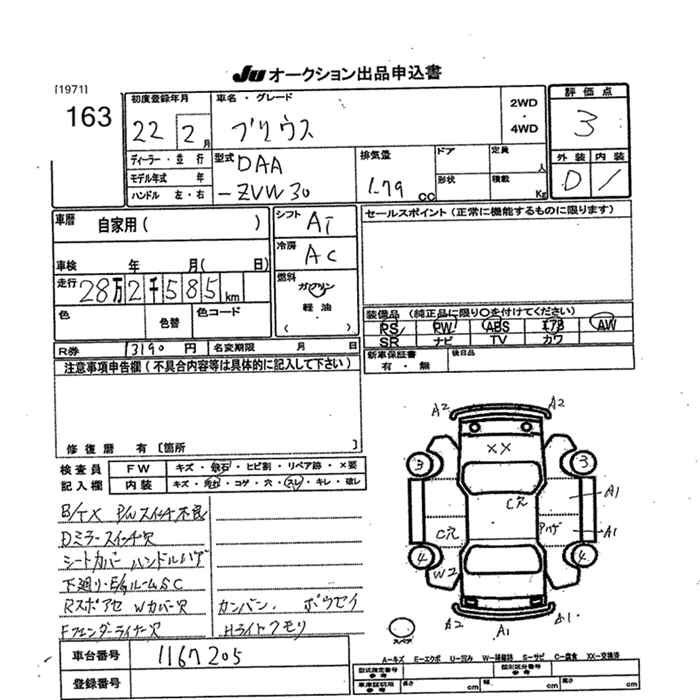 JU オークション出品申込書
[1971]
163
初度登録年月
22 2月
車名・グレード
プリウス
2WD
・
4WD
評価点
3
外装 内装
D /
ディーラー・並行
モデル年式 年
ハンドル 左・右
型式
DAA
-ZVW30
排気量
1.79 cc
ドア
形状
定員 人
積載 Kg
車暦 自家用( )
シフト AT
冷房 AC
燃料
ガソリン
軽油
( )
セールスポイント(正常に機能するものに限ります)
車検 年 月( 日)
走行 28万2千585km
色
色替
色コード
装備品(純正品に限り○を付けてください)
PS PW ABS エアB AW
SR ナビ TV カワ
R券 13190円 名変期限 月 日
新車保証書
有・無
後日品
注意事項申告欄(不具合内容等は具体的に記入して下さい)
修復暦 有〔箇所 〕
検査員 FW キズ・飛石・ヒビ割・リペア跡・×要
記入欄 内装 キズ・汚れ・コゲ・穴・スレ・キレ・破レ
B/TX P/Wスイッチ不良
Dミラースイッチ穴
シートカバー ハンドルハゲ
下廻り・E/gルームSC
Rスポアセ Wカバー穴
カンバン、ボウセイ
Fフェンダーライナー穴
Hライトクモリ
A2 A2
XX
3 3
C穴 A1
C穴 ハゲ A1
W2
4 4
A2 A1 A1
スペア
車台番号 1167205
登録番号
A=キズ E=エクボ U=凹み W=補修跡 S=サビ C=腐食 XX=交換済
型式指定番号
参考
類別区分番号
参考
車庫証明用
参考
長さ cm 幅 cm 高さ cm